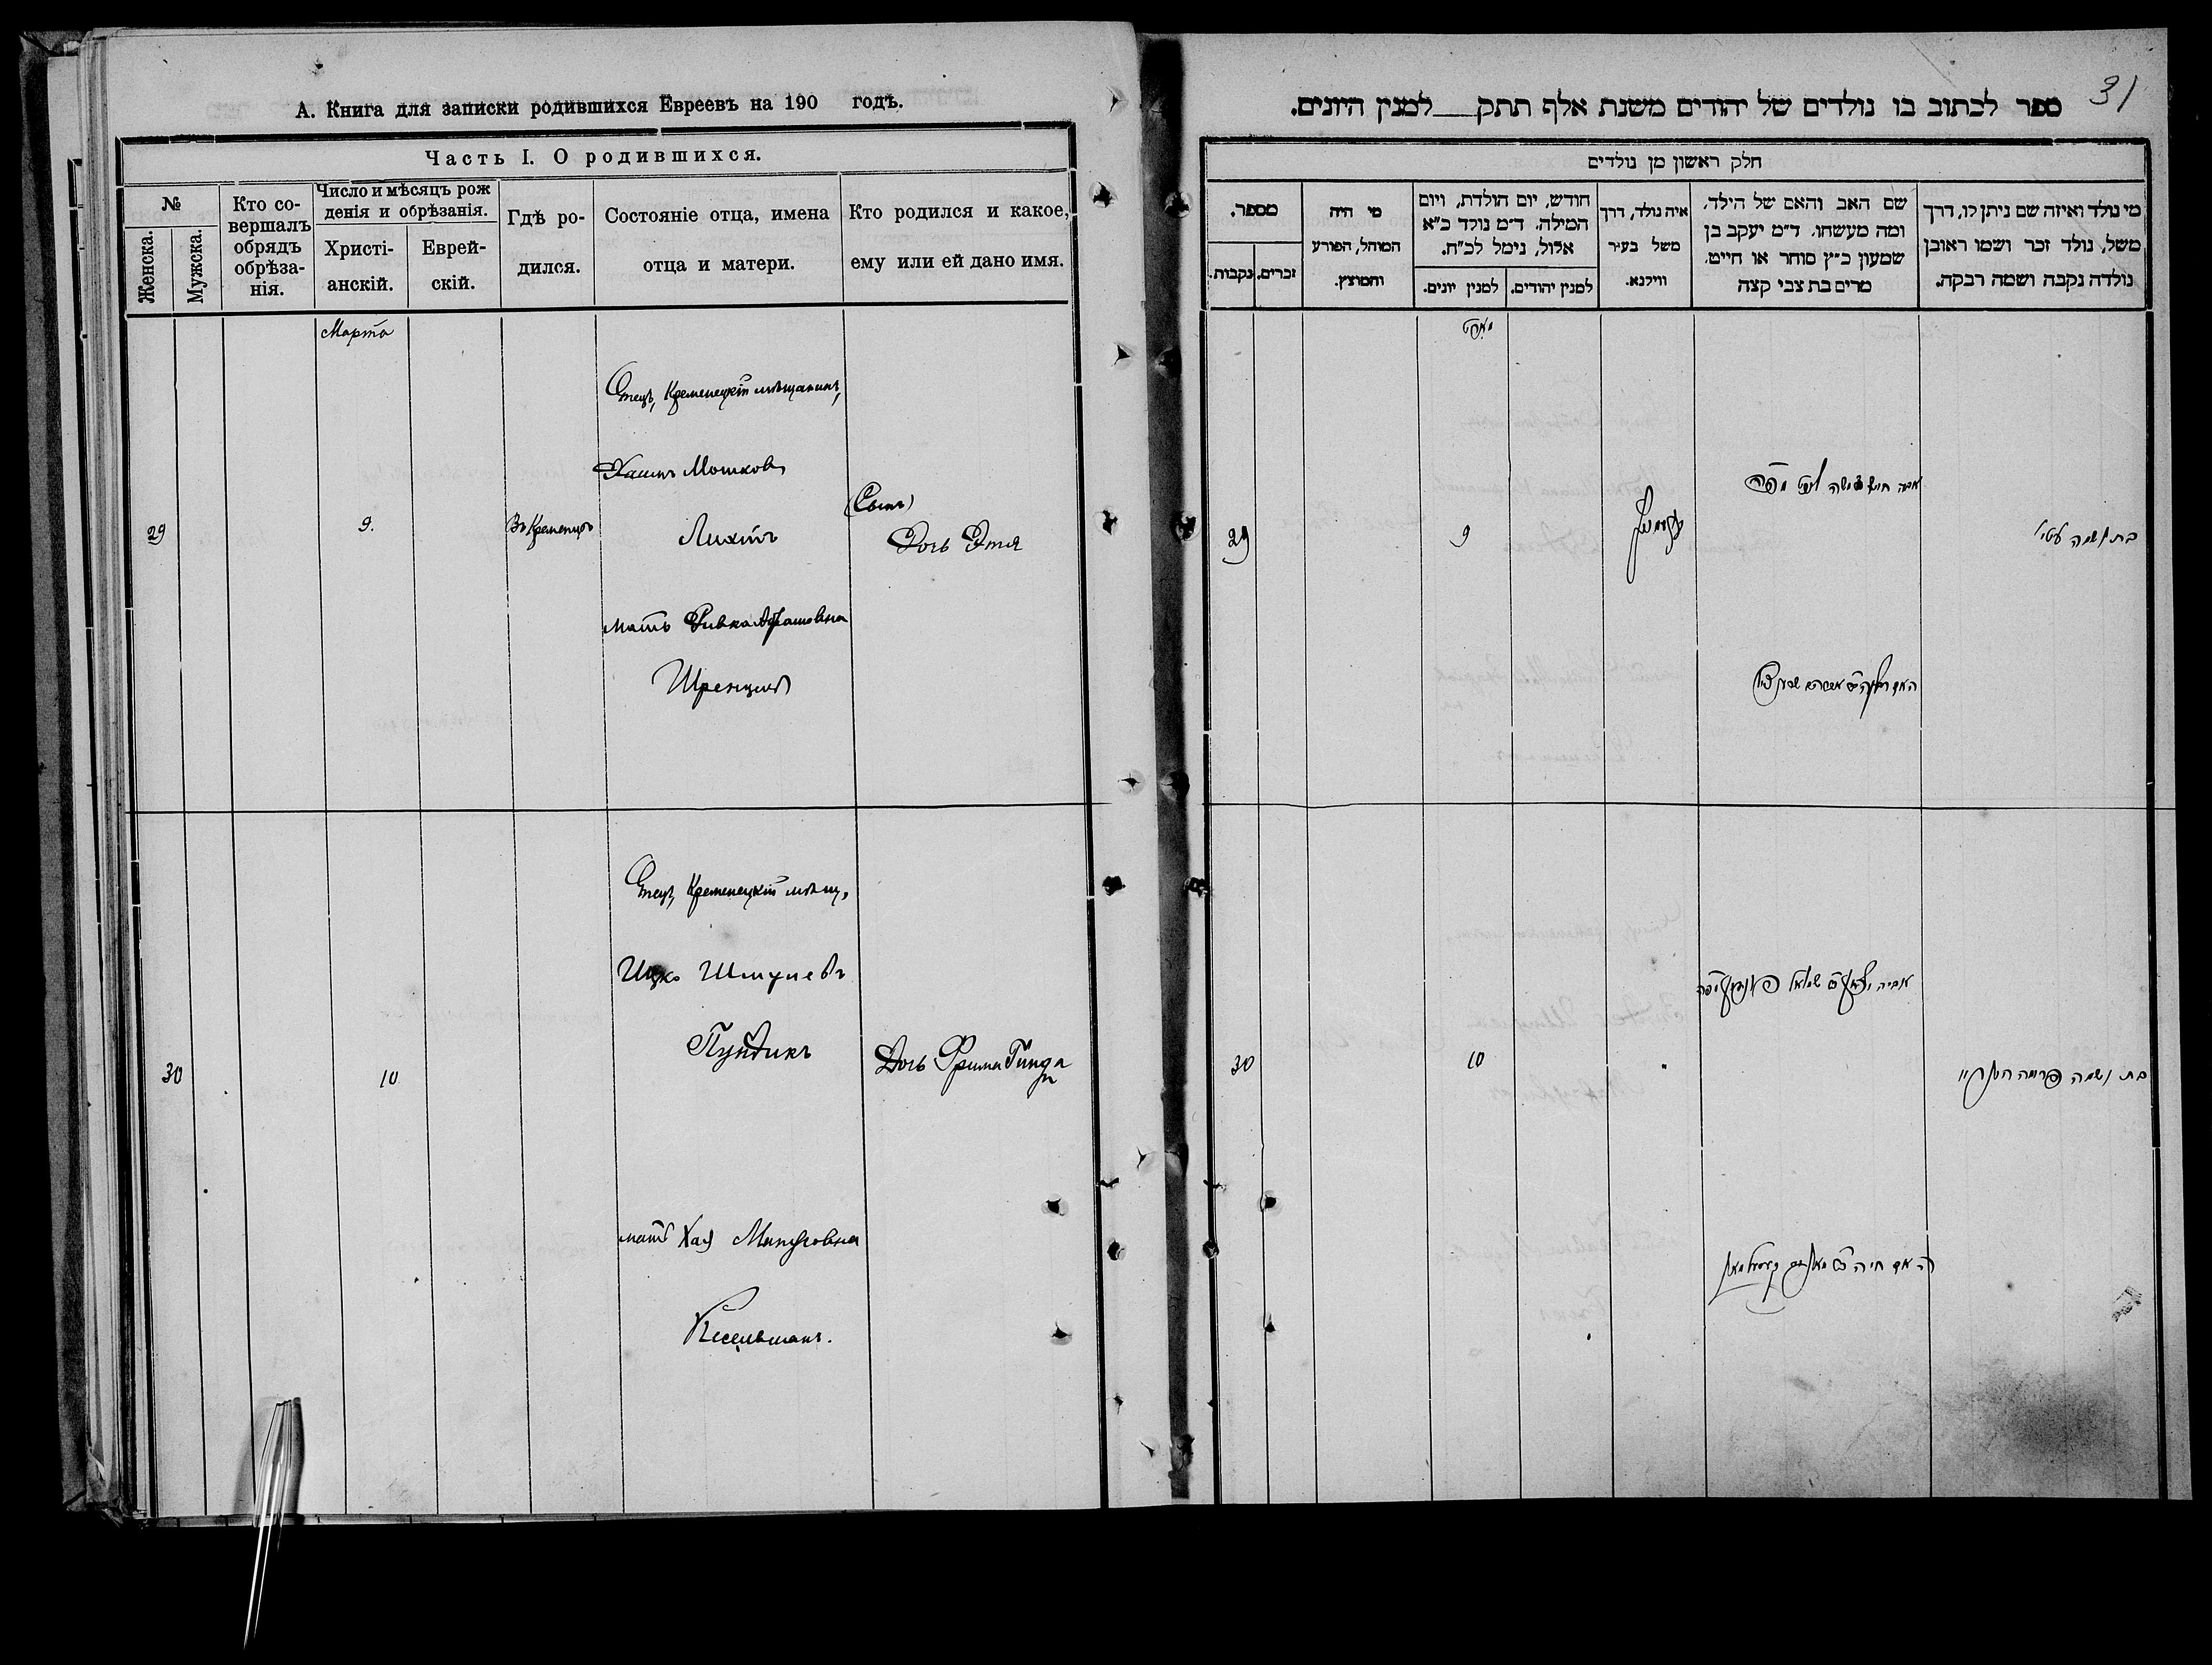 А. Книга для записки родившихся Евреевъ на 190 годъ.
Часть I. О родившихся.
№
Женска.
Мужска.
Кто со-
вершалъ
обрядъ
обрѣза-
нія.
Число и мѣсяцъ рож
денія и обрѣзанія.
Христі-
анскій.
Еврей-
скій.
Гдѣ ро-
дился.
Состояніе отца, имена
отца и матери.
Кто родился и какое,
ему или ей дано имя.
Марта
29
9.
Въ Кременцѣ
Отецъ, Кременецкій мѣщанинъ,
Хаимъ Мошковъ
мать Ривка
Дочь Этя
30
10
Отецъ, Кременецкій мѣщ.
Ицко Шмулевъ
Пундикъ
мать Хая
Кесельманъ.
Дочь Фрима Гинда
31
ספר לכתוב בו נולדים של יהודים משנת אלף תתק למנין היונים.
חלק ראשון מן נולדים
מי נולד ואיזה שם ניתן לו, דרך
משל, נולד זכר ושמו ראובן
נולדה נקבה ושמה רבקה.
שם האב והאם של הילד.
ומה מעשהו. ד״מ יעקב בן
שמעון כ״ץ סוחר או חייט.
מרים בת צבי קצה
איה נולד, דרך
משל בעיר
ווילנא.
חודש, יום הולדת, ויום
המילה. ד״מ נולד כ״א
אלול, נימל לכ״ח.
למנין יהודים.
למנין יונים.
מי היה
המוהל, הפורע
והמוצץ.
מספר.
זכרים.
נקבות.
29
9
בת ושמה עטי
30
10
בת ושמה פרומה